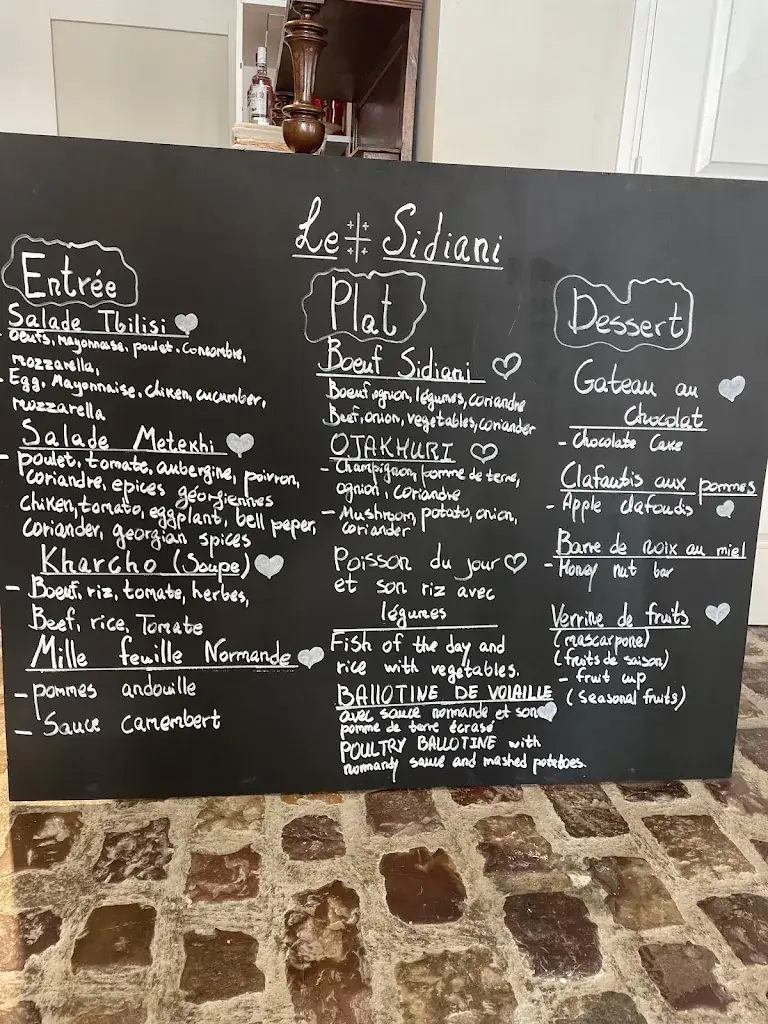 Le Sidiani
Entrée
Salade Tbilisi
- Oeufs, Mayonnaise, poulet, Concombre,
mozzarella,
- Egg, Mayonnaise, chiken, cucumber,
mozzarella
Salade Metekhi
- poulet, tomate, aubergine, poivron,
coriandre, epices géorgiennes
chiken, tomato, eggplant, bell peper,
coriander, georgian spices
Kharcho (Soupe)
- Boeuf, riz, tomate, herbes,
Beef, rice, Tomate
Mille feuille Normande
- pommes andouille
- Sauce camembert
Plat
Boeuf Sidiani
Boeuf, ognon, légumes, coriandre
Beef, onion, vegetables, coriander
OJAKHURI
- Champignon, pomme de terre,
ognion, coriandre
- Mushroom, potato, onion,
coriander
Poisson du jour
et son riz avec
légumes
Fish of the day and
rice with vegetables.
BALLOTINE DE VOLAILLE
avec sauce normande et son
pomme de terre écrasé
POULTRY BALLOTINE with
normandy sauce and mashed potatoes.
Dessert
Gateau au
Chocolat
- Chocolate Cake
Clafoutis aux pommes
- Apple clafoudis
Barre de noix au miel
- Honey nut bar
Verrine de fruits
(mascarpone)
(fruits de saison)
- fruit cup
(seasonal fruits)